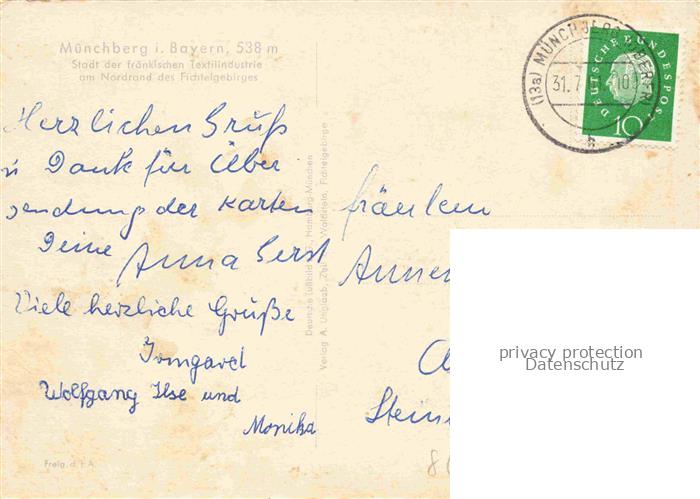 Münchberg i. Bayern, 538 m
Stadt der fränkischen Textilindustrie
am Nordrand des Fichtelgebirges
Herzlichen Gruß
u Dank für Über
sendung der Karten
Deine Anna Gerst
Viele herzliche Grüße
Irmgard
Wolfgang Ilse und
Monika
Freig. d. I. A.
Verlag A.
Fichtelgebirge
(13a) MÜNCHBERG
31.7
DEUTSCHE BUNDESPOST
10
Fräulein
Annem
Stein
privacy protection
Datenschutz